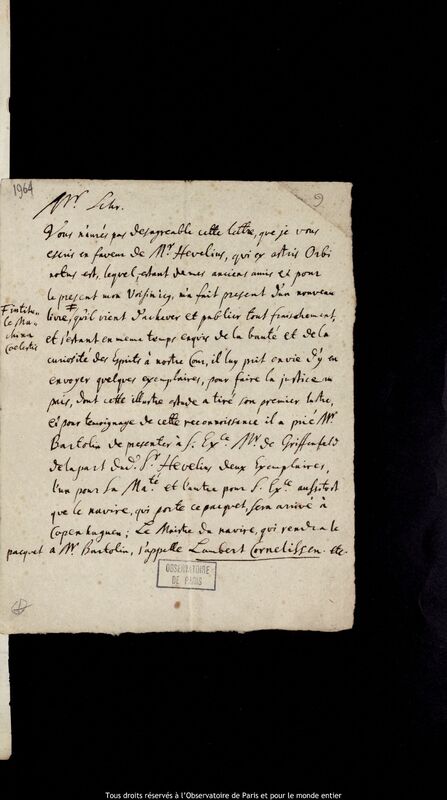 1964
9
Mr. Schr.
Vous n'aurés pas desagreable cette lettre, que je vous
escris en faveur de Mr. Hevelius, qui ex astris Orbi
notus est, lequel, estant de mes anciens amis et pour
le present mon Voisin icy, m'a fait present d'un nouveau
livre, qu'il vient d'achever et publier tout fraischement,
F intitu-
le Ma-
china
Coelestis
et s'estant en meme temps enquis de la bonté et de la
curiosité des Esprits à nostre Cour, il luy prit envie d'y en
envoyer quelques exemplaires, pour faire la justice au
pais, dont cette illustre estude a tiré son premier lustre,
et pour temoignage de cette reconnoissance il a prié Mr.
Bartolin de presenter à S. Exce Mr. de Griffenfeld
de la part dud. Sr. Hevelius deux Exemplaires,
l'un pour Sa Maté et l'autre pour S. Exce aussitost
que le navire, qui porte ce pacquet, sera arrivé à
Copenhaguen; Le Maistre du navire, qui rendra le
pacquet à Mr. Bartolin, s'appelle Lambert Cornelissen. etc.
OBSERVATOIRE
DE PARIS
Tous droits réservés à l'Observatoire de Paris et pour le monde entier